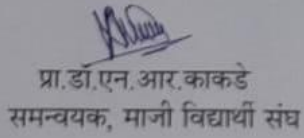 प्रा.डॉ.एन.आर.काकडे
समन्वयक, माजी विद्यार्थी संघ